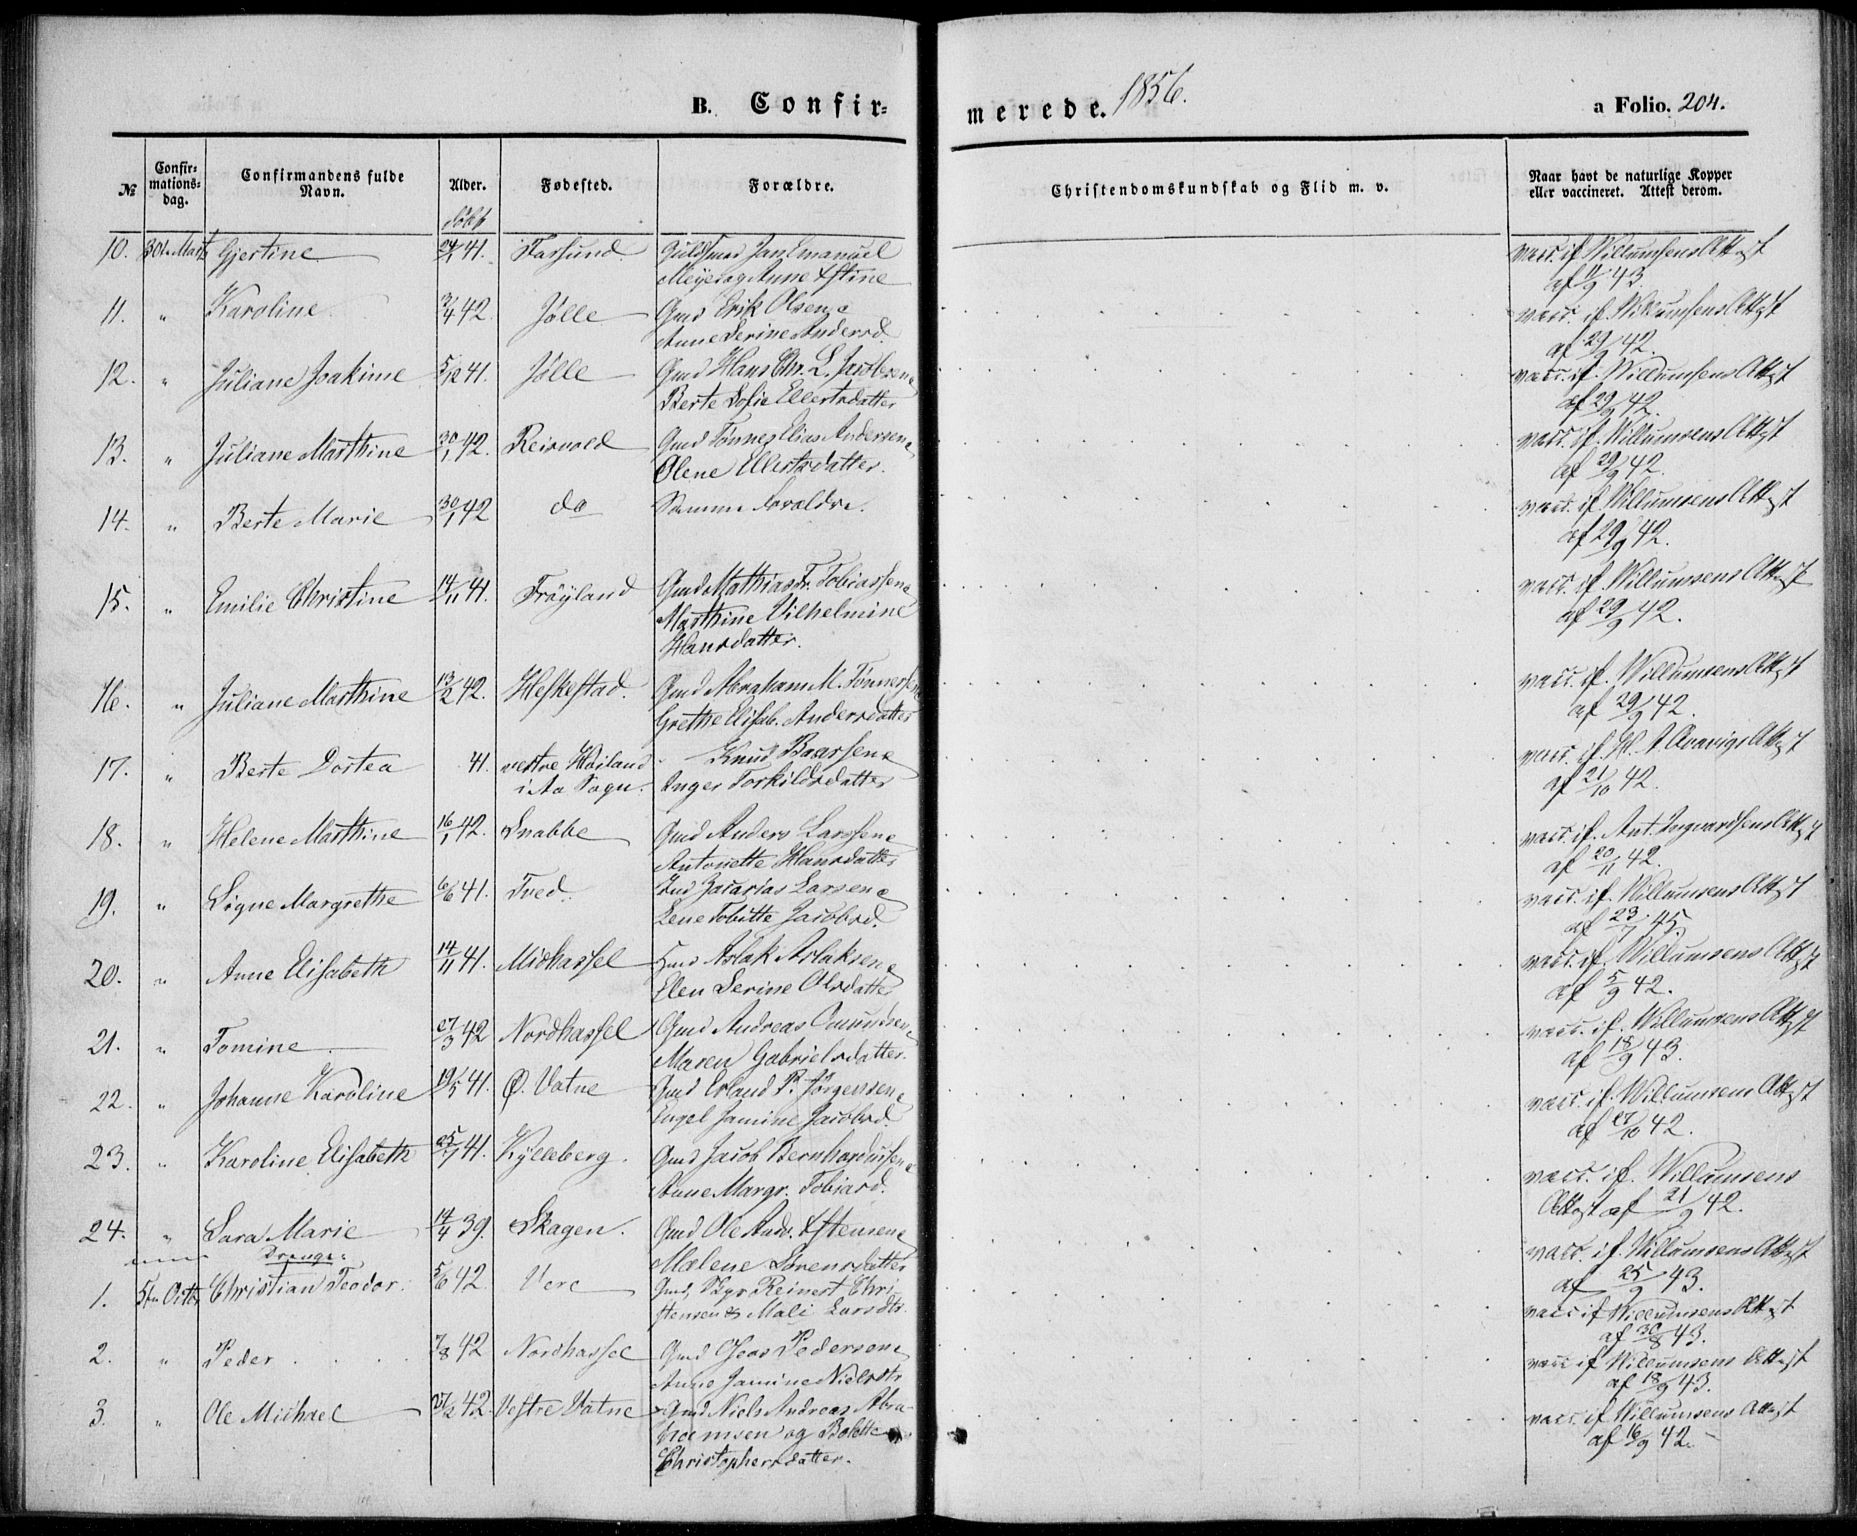 B. Confir-
merede. 1856.
a Folio. 204.
No
Confir-
mations-
dag.
Confirmandens fulde
Navn.
Alder.
døbt
Fødested.
Forældre.
Christendomskundskab og Flid m. v.
Naar havt de naturlige Kopper
eller vaccineret. Attest derom.
10. Gjertine 41. Farsund. Guldsmed Jan Emanuel
Meyer og Anne
vacc. if. Willumsens Attest
af 43.
11. " Karoline 3/4 42. Jølle Gmd Erik Olsen &
Anne Serine Andersd.
vacc. if. Willumsens Attest
af 29/9 42.
12. " Juliane Joakime 5/12 41. Jølle Gmd Hans Chr. L. Jacobsen &
Berte Sofie Ellertsdatter
vacc. if. Willumsens Attest
af 29/9 42.
13. " Juliane Marthine 30/1 42. Reisvold Gmd Tønnes Elias Andersen &
Olene Ellertsdatter.
vacc. if. Willumsens Attest
af 29/9 42.
14. " Berte Marie 30/1 42 do Samme Forældre.
vacc. if. Willumsens Attest
af 29/9 42.
15. " Emilie Christine 14/11 41. Frøyland Gmd Mathias Fr. Tobiassen &
Marthine Vilhelmine
Hansdatter.
vacc. if. Willumsens Attest
af 29/9 42.
16. " Juliane Marthine 13/2 42. Heskestad. Gmd Abraham M. Tønnessen
Grethe Elisab. Andersdatter
vacc. if. Willumsens Attest
af 29/9 42.
17. " Berte Dortea 41. vestre Høiland
i Aa Sogn. Knud Baarsen &
Inger Torkildsdatter
vacc. if. Attest
af 21/10 42.
18. " Helene Marthine 16/1 42. Snabbe Gmd Anders Larssen &
Antonette Hansdatter
vacc. if. Ant. Ingvardsens Attest
af 20/11 42.
19. " Signe Margrethe 6/6 41. Tved. Zacarias Larsen &
Lene Tobitte Jacobsd.
vacc. if. Willumsens Attest
af 23/7 45.
20. " Anne Elisabeth 14/11 41. Midhassel Aslak Aslaksen &
Elen Serine Olsdatter
vacc. if. Willumsens Attest
af 5/9 42.
21. " Tomine 27/3 42 Nordhassel Gmd Andreas Omundsen &
Maren Gabrielsdatter.
vacc. if. Willumsens Attest
af 18/9 43.
22. " Johanne Karoline 19/5 41. Ø. Vatne Gmd Erland P. Jørgensen &
Engel Jamine Jacobsd.
vacc. if. Willumsens Attest
af 27/10 42.
23. " Karoline Elisabeth 25/7 41. Kylleberg. Gmd Jacob Bernhardussen &
Anne Margr. Tobiasd.
vacc. if. Willumsens
Attest af 21/9 42.
24. " Sara Marie 14/4 39. Skagen. Gmd Ole Andr. Estensen &
Malene Sørensdatter
vacc. if. Willumsens Attest
af 25/9 43.
Drenge:
1. 5te Octbr Christian Teodor. 5/6 42 Vere Gmd, Reinert Chri-
stensen & Mali Larsdtr
vacc if Willumsens Attest
af 30/8 43.
2. " Peder 7/8 42 Nordhassel Gmd Jens Pedersen &
Anne Jamine Nielsdtr
vacc if Willumsens Attest
af 18/9 43.
3. " Ole Michael 42. Vestre Vatne Gmd Niels Andreas Abra-
hamsen og Bolette
Christophersdatter.
vacc. if Willumsens Attest
af 16/9 42.